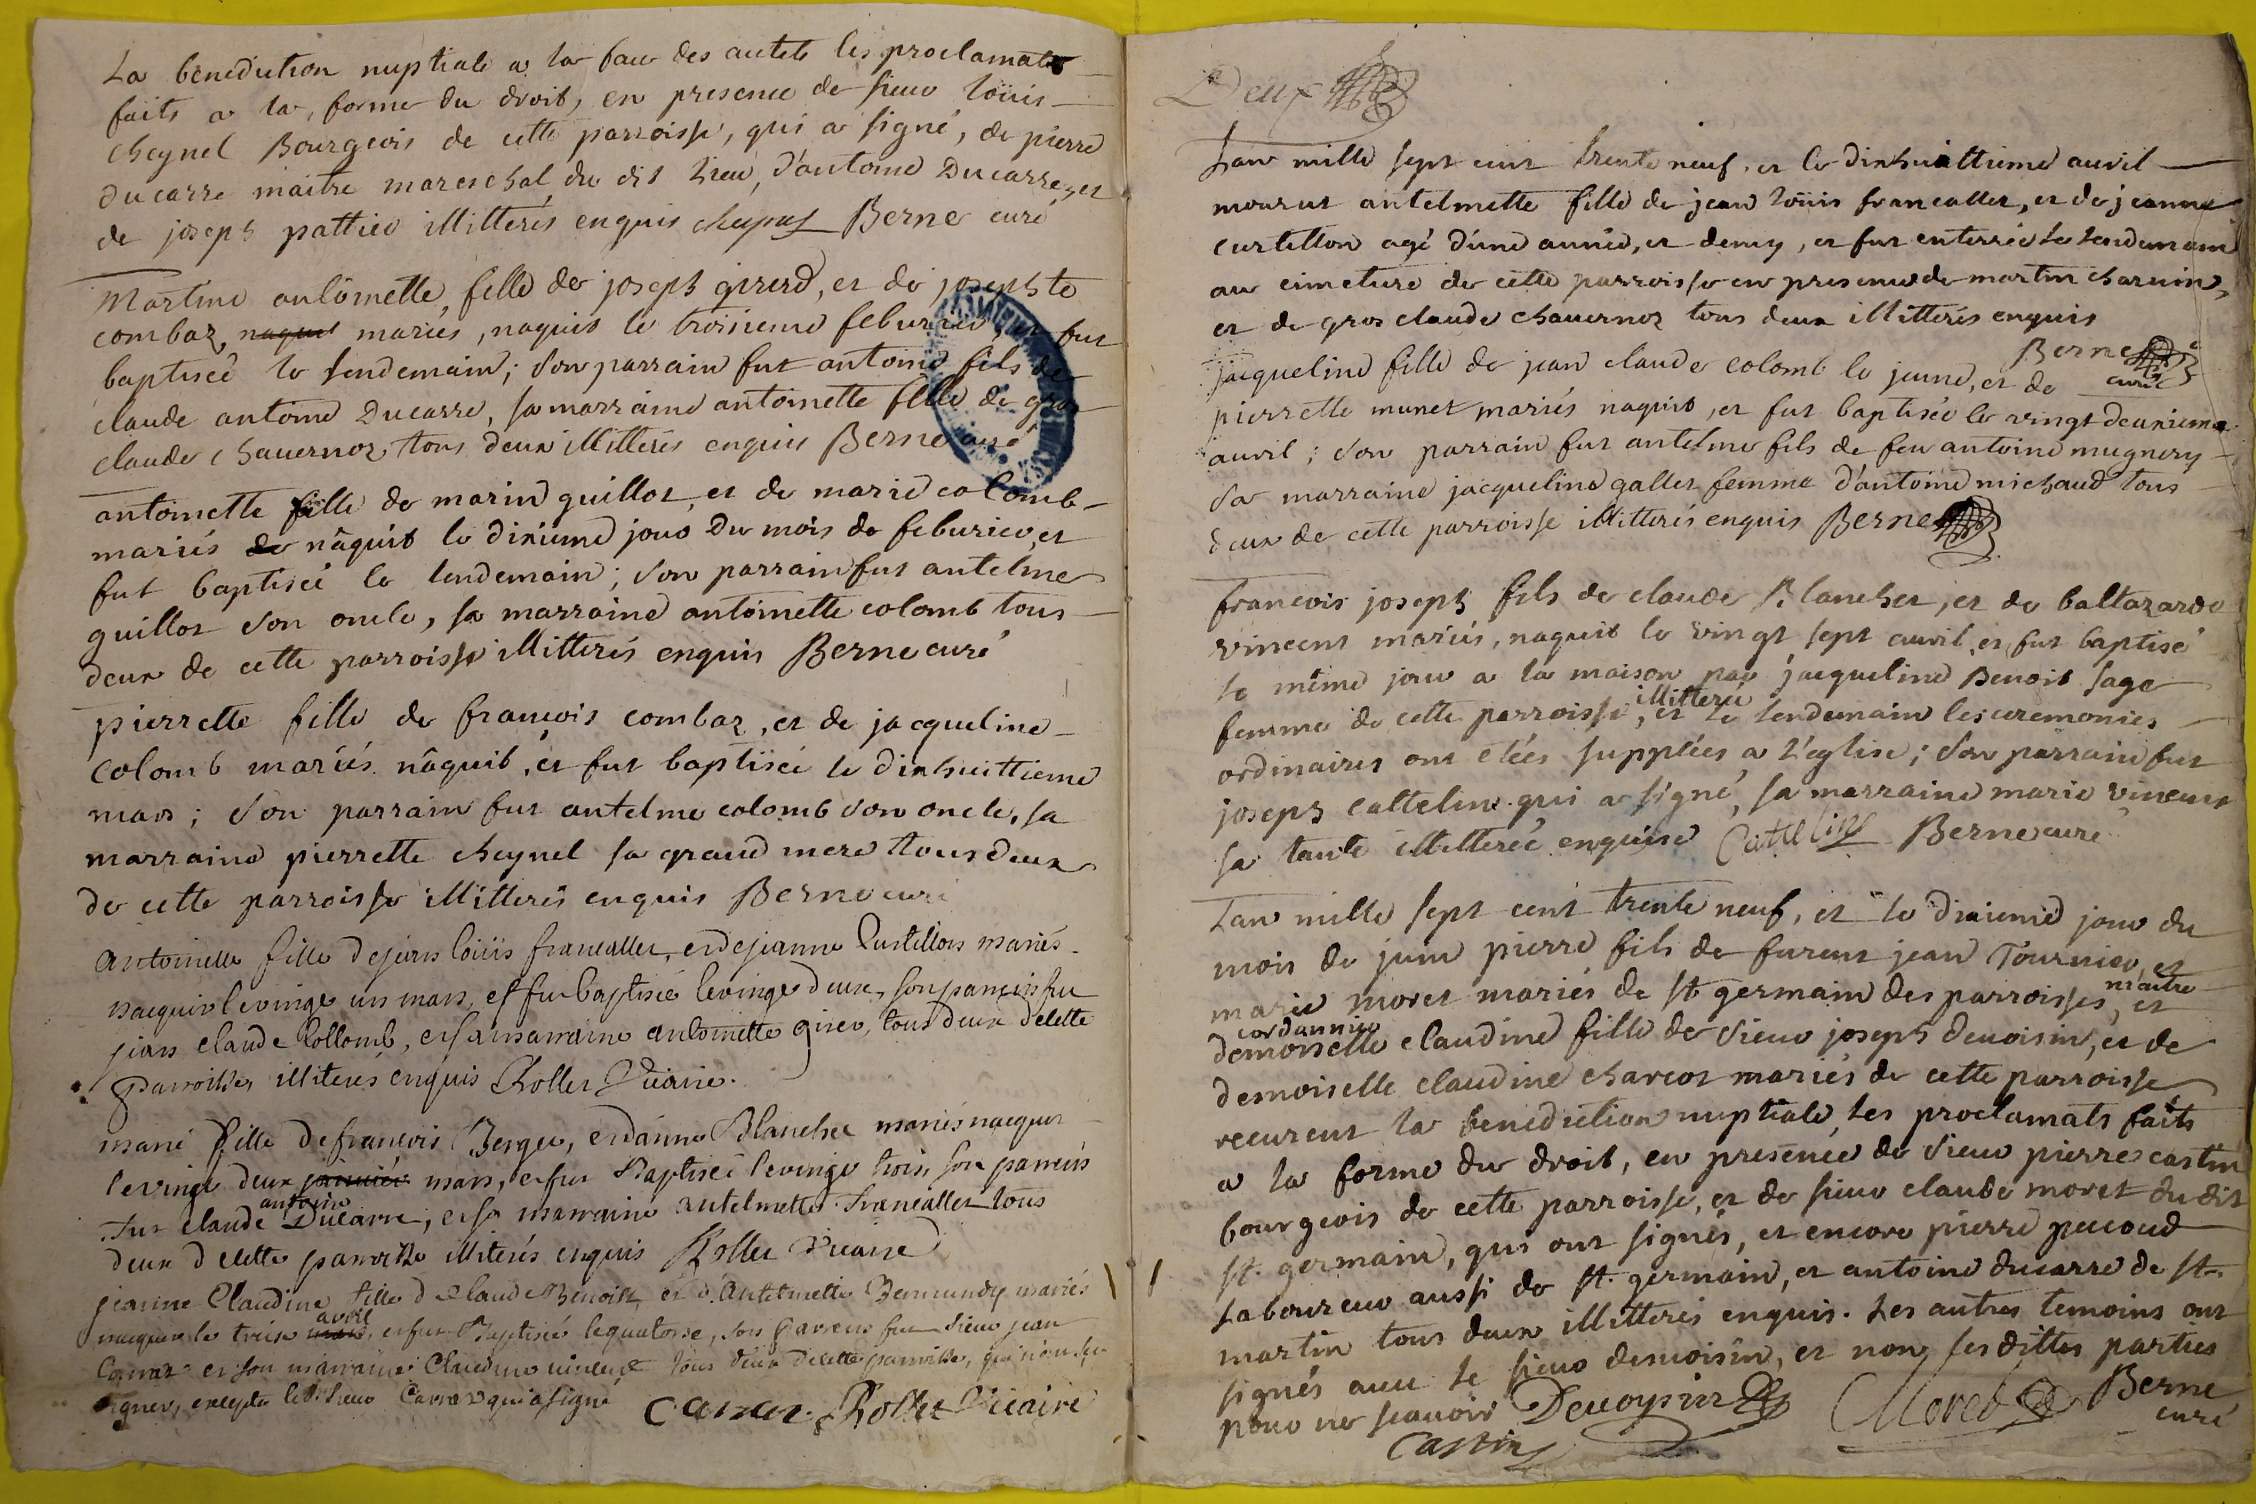 La benediction nuptiale a la face des autels les proclamats
faits a la forme du droit, en presence de sieur loüis
cheynel Bourgeois de cette parroisse, qui a signé, de pierre
ducarre maitre mareschal du dit lieu, d'antoine Ducarre, et
de joseph pattier illitterés enquis Berne curé
Martine antoinette fille de joseph girerd, et de josephte
combaz, naquit mariés, naquit le troisieme feburier, et fut
baptiseé le lendemain; son parrain fut antoine fils de
claude antoine Ducarre, sa marraine antoinette fille de gros
claude chauernoz tous deux illitterés enquis Berne curé
antoinette fille de marin guillot, et de marie colomb
mariés de nâquit le dixieme jour du mois de feburier, et
fut baptiseé le lendemain; son parrain fut antelme
guillot son oncle, sa marraine antoinette colomb tous
deux de cette parroisse illitterés enquis Berne curé
pierrette fille de françois combaz, et de jacqueline
colomb mariés nâquit, et fut baptiseé le dixhuittieme
mars; son parrain fut antelme colomb son oncle, sa
marraine pierrette cheynel sa grand mere tous deux
de cette parroisse illitterés enquis Berne curé
antoinette fille de jean loüis francallet, et de jeanne Curtillon mariés
nacquit le vingt un mars, et fut baptisé le vingt deux, son parrein fut
jean claude Collomb, et sa marraine antoinette girer, tous deux de cette
parroisse illiterés enquis Rollet Vicaire.
marie fille de francois Berger, et d'anne Blanchet mariés nacquit
le vingt deux janvier mars, et fut Baptiseé le vingt trois, son parrein
antoine
fut claude Ducarre, et sa marraine antelmette francallet tous
deux de cette parroisse illiterés enquis Rollet Vicaire
jeanne Claudine fille de Claude Benoit, et d'Antelmette mariés
avril
nacquit le treise mars, et fut Baptiseé le quatorse, son parrein fut sieur jean
Carraz et son marraine Claudine vincent tous deux de cette parroisse, qui n'ont sçu
signer, excepté led. sieur Carraz qui a signé
Carraz Rollet Vicaire
Deux
Lan mille sept cent trente neuf, et le dixhuittieme auvril
mourut antelmette fille de jean loüis francallet, et de jeanne
curtillon agé d'une année, et demy, et fut enterreé le lendemain
au cimetiere de cette parroisse en presence de martin charuin,
et de gros claude chauernoz tous deux illitterés enquis
Berne
curé
jacqueline fille de jean claude colomb le jeune, et de
pierrette munet mariés naquit, et fut baptisée le vingt deuxieme
auvril; son parrain fut antelme fils de feu antoine mugnery
sa marraine jacqueline gallet femme d'antoine michaud tous
deux de cette parroisse illitterés enquis Berne
francois joseph fils de claude Blanchet, et de baltazarde
vincent mariés, naquit le vingt sept auvril, et fut baptisé
le même jour a la maison par jacqueline Benoit sage
illitterée
femme de cette parroisse, et le lendemain les ceremonies
ordinaires ont etées suppleés a l'eglise; son parrain fut
joseph cattelin qui a signé, sa marraine marie vincent
sa tante illitereé enquise Cattelin Berne curé
Lan mille sept cent trente neuf, et le dixieme jour du
mois de juin pierre fils de furent jean Tournier, et
marie moret mariés de st germain des parroisses, maitre
cordannier et
demoiselle claudine fille de sieur joseph deuoisin, et de
demoiselle claudine charcot mariés de cette parroisse
recurent la benediction nuptiale, les proclamats faits
a la forme du droit, en presence de sieur pierre castin
bourgeois de cette parroisse, et de sieur claude moret du dit
st. germain, qui ont signés, et encore pierre pecoud
laboureur aussi de st. germain, et antoine ducarre de st.
martin tous deux illitterés enquis. Les autres temoins ont
signés auec le sieur deuoisin, et non les dittes parties
pour ne scauoir Deuoysin Moret Berne
curé
Castin